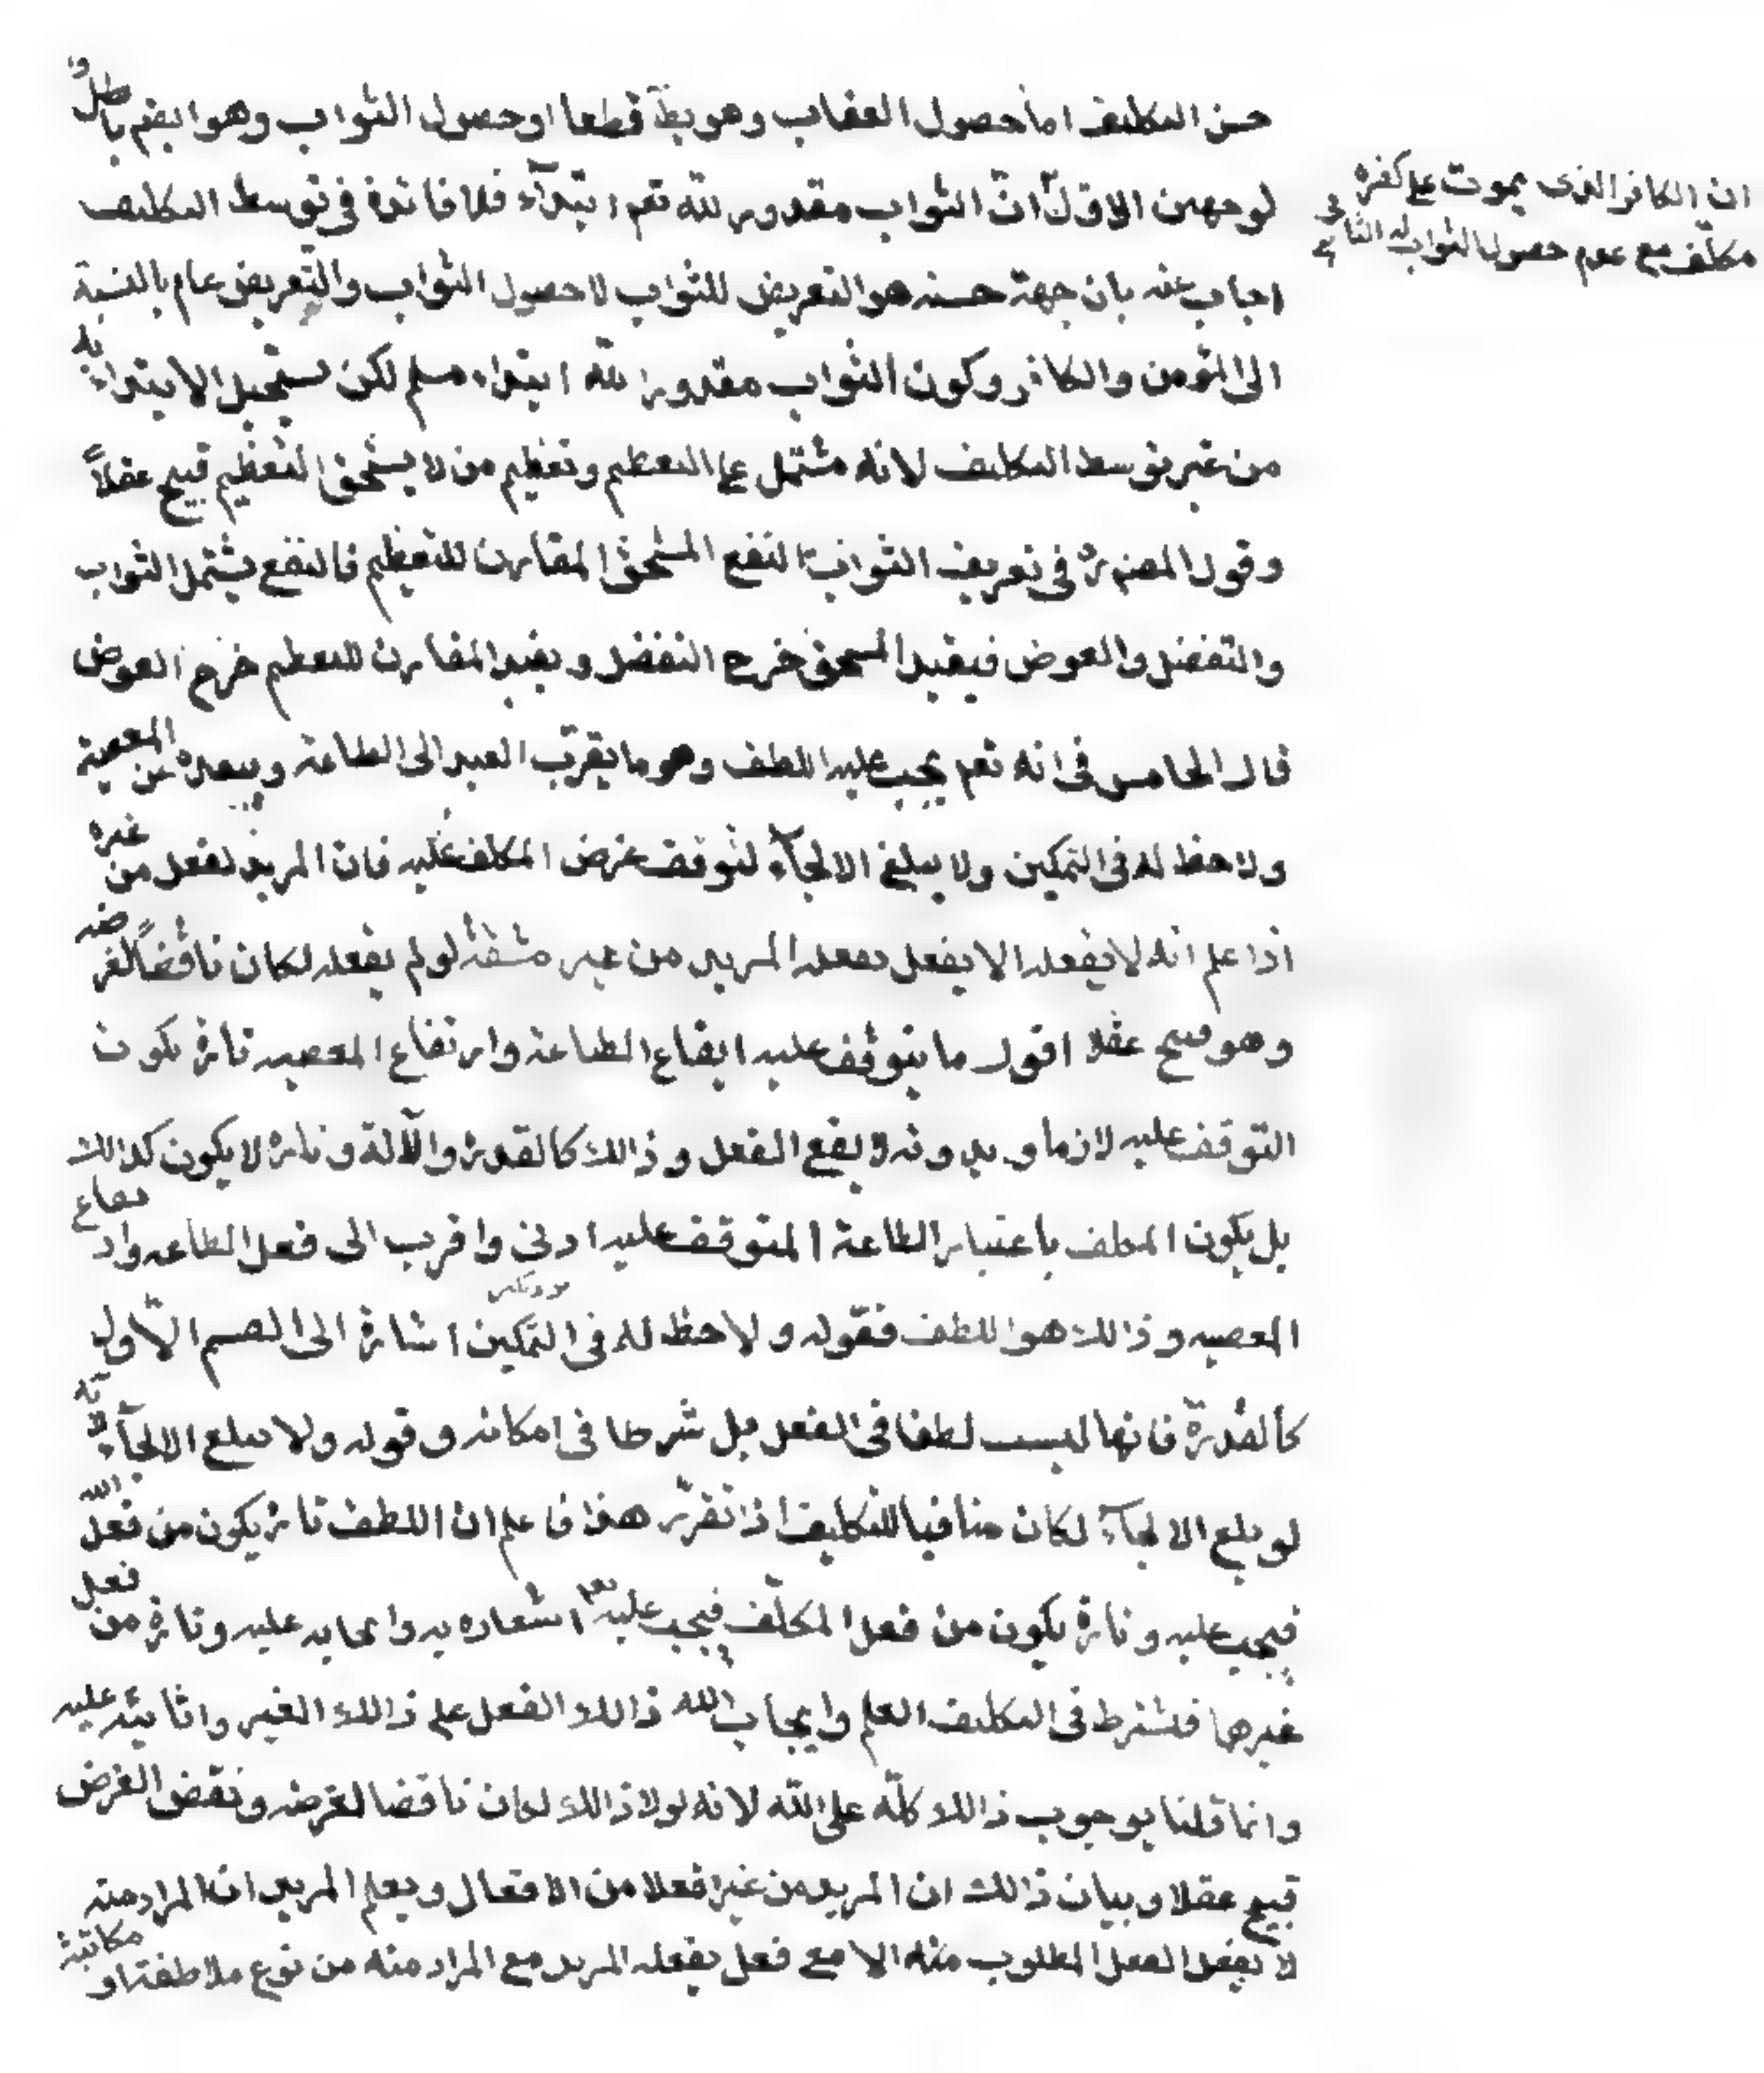 حسن التكليف اما حصول العقاب وهو بط قطعا او حصول الثواب وهو ايضم باطل
لوجهين الاول ان الثواب مقدور لله تعم ابتدآء فلا فائدة فى توسط التكليف
ان الكافر الذى يموت على كفره
مكلف مع عدم حصول الثواب له الثانى
اجاب عنه بان جهة حسنه هو التعريض للثواب لا حصول الثواب والتعريض عام بالنسبة
الى المؤمن والكافر وكون الثواب مقدورا لله ابتداء مسلم لكن يستحيل الابتداء به
من غير توسط التكليف لانه مشتمل على التعظيم وتعظيم من لا يستحق التعظيم قبيح عقلاً
وقول المصنف ره فى تعريف الثواب النفع المستحق المقارن للتعظيم فالنفع يشتمل الثواب
والتفضل والعوض فبقيد المستحق خرج التفضل وبقيد المقارن للتعظيم خرج العوض
قال الخامس فى انه تعم يجب عليه اللطف وهو ما يقرب العبد الى الطاعة ويبعده عن المعصية
ولا حظ له فى التمكين ولا يبلغ الالجآء لتوقف غرض المكلف عليه فان المريد لفعل من غيره
اذا علم انه لا يفعله الا بفعل يفعله المريد من غير مشقة لو لم يفعله لكان ناقضاً لغرضه
وهو قبيح عقلا اقول ما يتوقف عليه ايقاع الطاعة وارتفاع المعصيه تارة يكون
التوقف عليه لازما و بدونه لا يقع الفعل و ذالك كالقدرة والآلة و تارة لا يكون كذالك
بل يكون المكلف باعتبار الطاعة المتوقف عليه ادنى واقرب الى فعل الطاعه وارتفاع
المعصيه و ذالك هو اللطف فقوله و لا حظ له فى التمكين اشارة الى القسم الاول
كالقدرة فانها ليست لطفا فى الفعل بل شرطا فى امكانه و قوله ولا يبلغ الالجآء لانه
لو بلغ الالجآء لكان منافيا للتكليف اذا تقرر هذا فاعلم ان اللطف تارة يكون من فعل الله
فيجب عليه و تارة يكون من فعل المكلف فيجب عليه تعم اشعاره به وايجابه عليه وتارة من فعل
غيرهما فيشترط فى التكليف العلم وايجاب الله ذالك الفعل على ذالك الغير واثابته عليه
وانما قلنا بوجوب ذالك كله على الله لانه لولا ذالك لكان ناقضا لغرضه ونقض الغرض
قبيح عقلا وبيان ذالك ان المريد من غيره فعلا من الافعال ويعلم المريد ان المراد منه
لا يفعل الفعل المطلوب منه الا مع فعل يفعله المريد مع المراد منه من نوع ملاطفة او مكاتبة